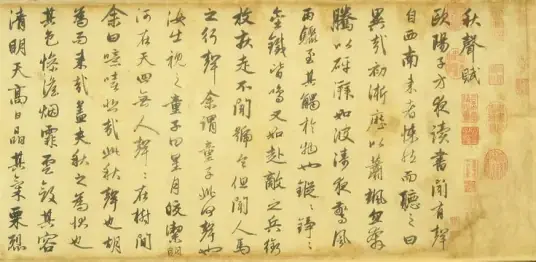 秋聲賦
歐陽子方夜讀書聞有聲
自西南來者悚然而聽之曰
異哉初淅瀝以蕭颯忽奔
騰以砰湃如波濤夜驚風
雨驟至其觸於物也鏦〻錚〻
金鐵皆鳴又如赴敵之兵銜
枚疾走不聞號令但聞人馬
之行聲余謂童子此何聲也
汝出視之童子曰星月皎潔明
河在天四無人聲〻在樹間
余曰噫嘻悲哉此秋聲也胡
為而來哉蓋夫秋之為狀也
其色慘澹烟霏雲斂其容
清明天高日晶其氣栗冽